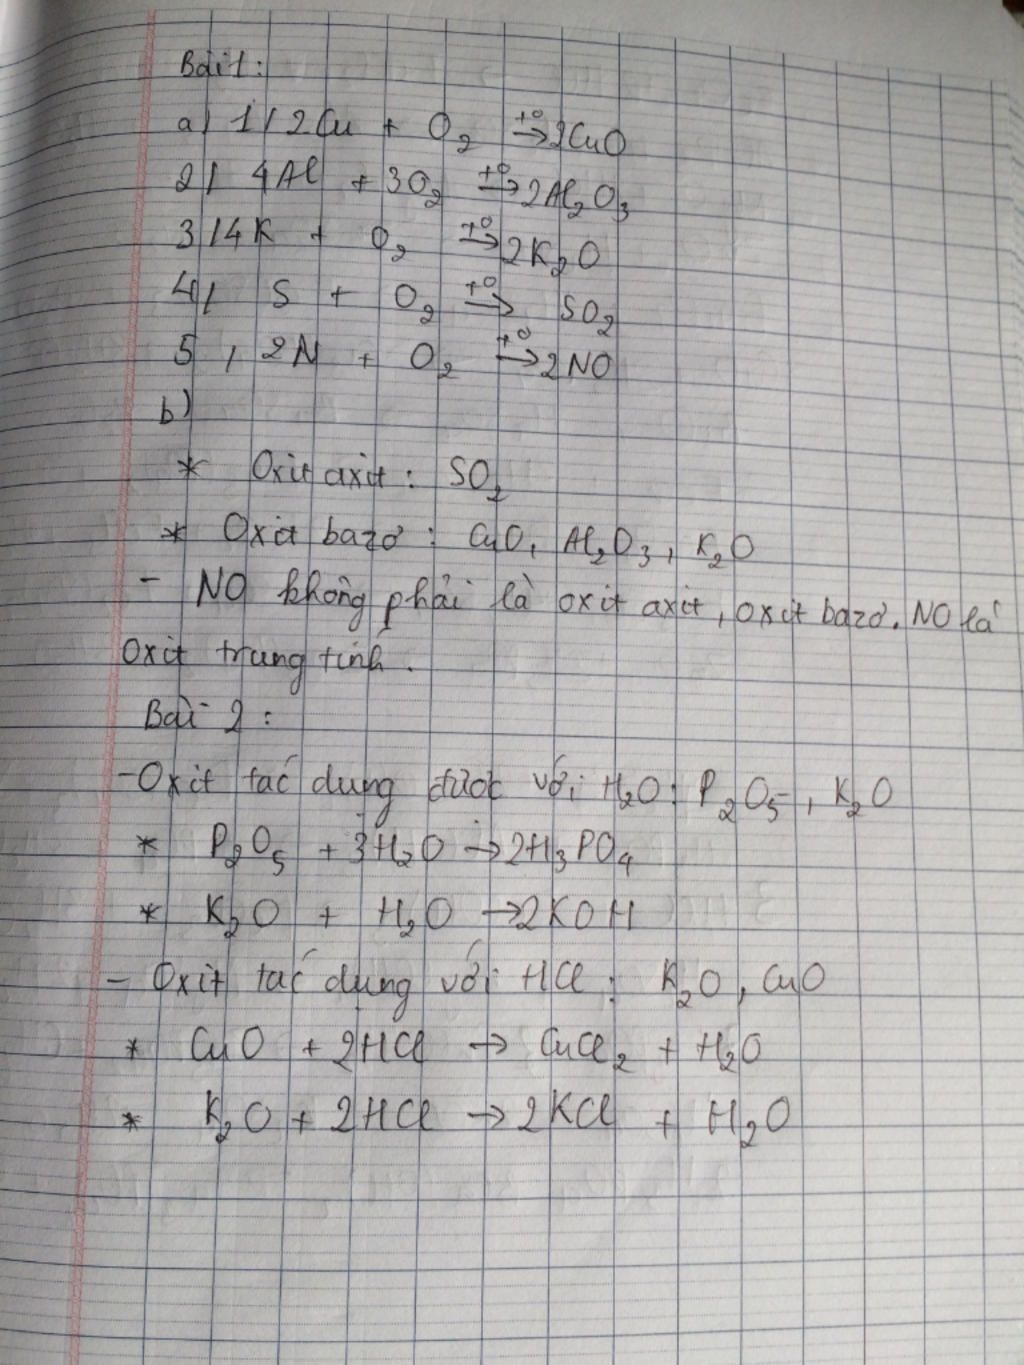 Bài 1:
a) 1/ 2Cu + O₂ →(t°) 2CuO
2/ 4Al + 3O₂ →(t°) 2Al₂O₃
3/ 4K + O₂ →(t°) 2K₂O
4/ S + O₂ →(t°) SO₂
5, 2N + O₂ →(t°) 2NO
b)
* Oxit axit: SO₂
* Oxit bazơ: CuO, Al₂O₃, K₂O
- NO không phải là oxit axit, oxit bazơ. NO là
oxit trung tính.
Bài 2:
- Oxit tác dụng được với H₂O: P₂O₅, K₂O
* P₂O₅ + 3H₂O → 2H₃PO₄
* K₂O + H₂O → 2KOH
- Oxit tác dụng với HCl: K₂O, CuO
* CuO + 2HCl → CuCl₂ + H₂O
* K₂O + 2HCl → 2KCl + H₂O